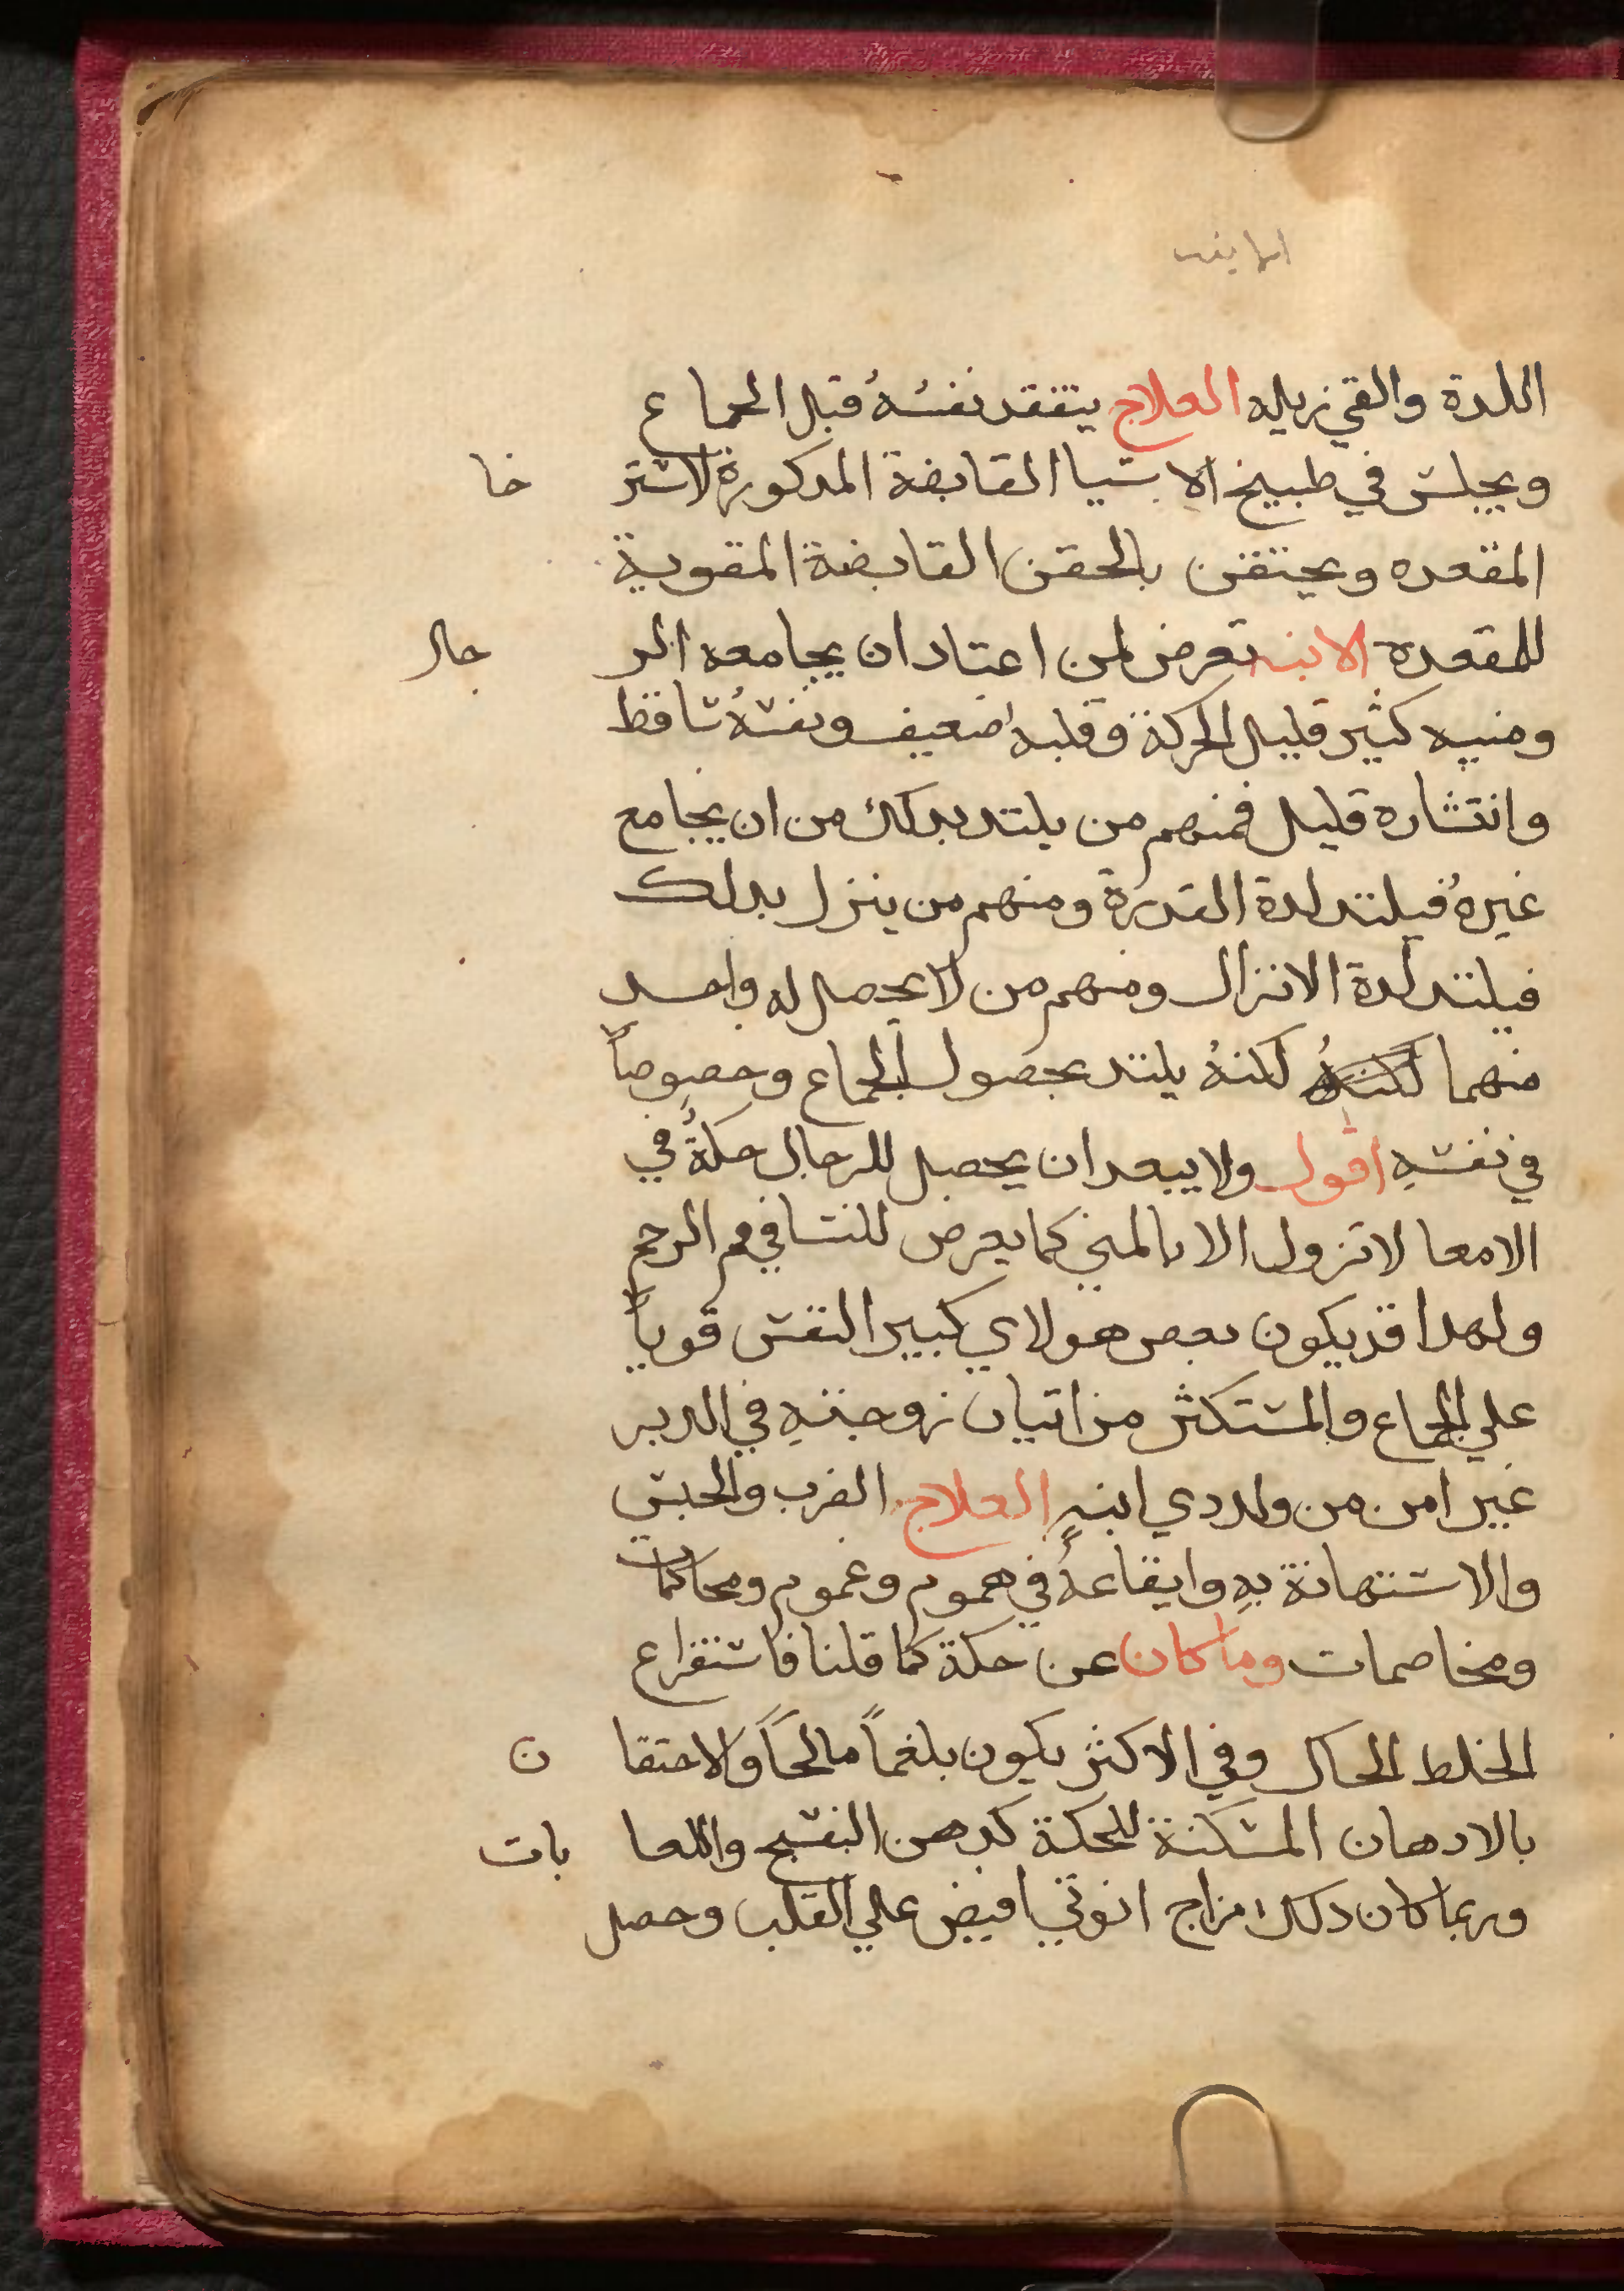 اللدة والقي زيله العلاج يتفقد نفسهُ قبل الجماع
ويجلس في طبيخ الاشيا القابضة المدكورة لاسترخا
المقعده ويحتقن بالحقن القابضة المقوية
للمقعدة الابنه تعرض لمن اعتاد ان يجامعه الرجال
ومنيه كثير قليل الحركة وقلبهُ ضعيف ونفسهُ ساقط
وانتشاره قليل فمنهم من يلتد بدلك من ان يجامع
غيرهُ فيلتد لدة القدرة ومنهم من ينزل بدلك
فيلتد لدة الانزال ومنهم من لا يحصل له واحد
منهما لكنهُ لكنهُ يلتد بحصول الجماع وخصوصاً
في نفسهِ اقول ولا يبعد ان يحصل للرجال حكةُ في
الامعا لا تزول الا بالمني كما يعرض للنسا في فم الرحم
ولهدا قد يكون بعض هولاي كبير النفس قوياً
علي الجماع والمستكثر من اتيان زوجتهِ في الدبر
غير امن من ولد دي ابنهٍ العلاج الضرب والحبس
والاستهانة بهِ وايقاعهُ في هموم وغموم ومحاكمات
ومخاصمات وما كان عن حكة كما قلنا فاستفراع
الخلط الحاك وفي الاكثر يكون بلغماً مالحاً والاحتقان
بالادهان المسكنة للحكة كدهن البنفسج واللعابات
وربما كان دلك مزاج انوثي افيض علي القلب وحصل